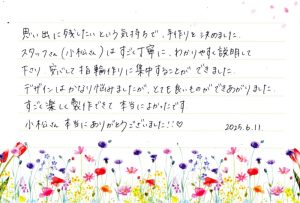 思い出に残したいという気持ちで、手作りと決めました。
スタッフさん(小松さん)はすごく丁寧に、わかりやすく説明して
下さり 安心して指輪作りに集中することができました。
デザインはかなり悩みましたが、とても良いものができあがりました。
すごく楽しく製作できて本当によかったです
小松さん本当にありがとうございました!!♡
2025.6.11